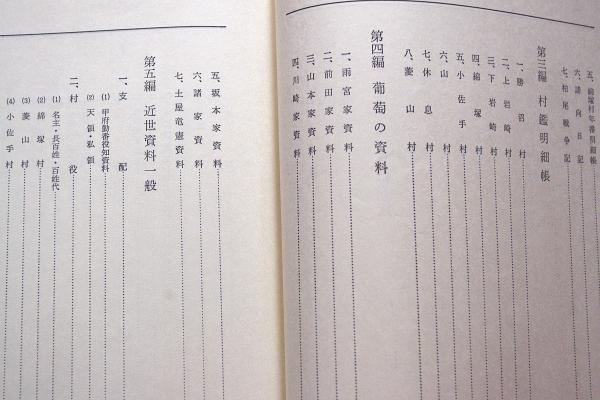 五、綿塚村年番明細帳
六、諸向日記
七、柏尾戦争記
第三編 村鑑明細帳
一、勝沼村
二、上岩崎村
三、下岩崎村
四、綿塚村
五、小佐手村
六、山村
七、休息村
八、菱山村
第四編 葡萄の資料
一、雨宮家資料
二、前田家資料
三、山本家資料
四、川崎家資料
五、坂本家資料
六、諸家資料
七、土屋竜憲資料
第五編 近世資料一般
一、支配
⑴ 甲府勤番役知資料
⑵ 天領・私領
二、村役
⑴ 名主・長百姓・百姓代
⑵ 綿塚村
⑶ 菱山村
⑷ 小佐手村